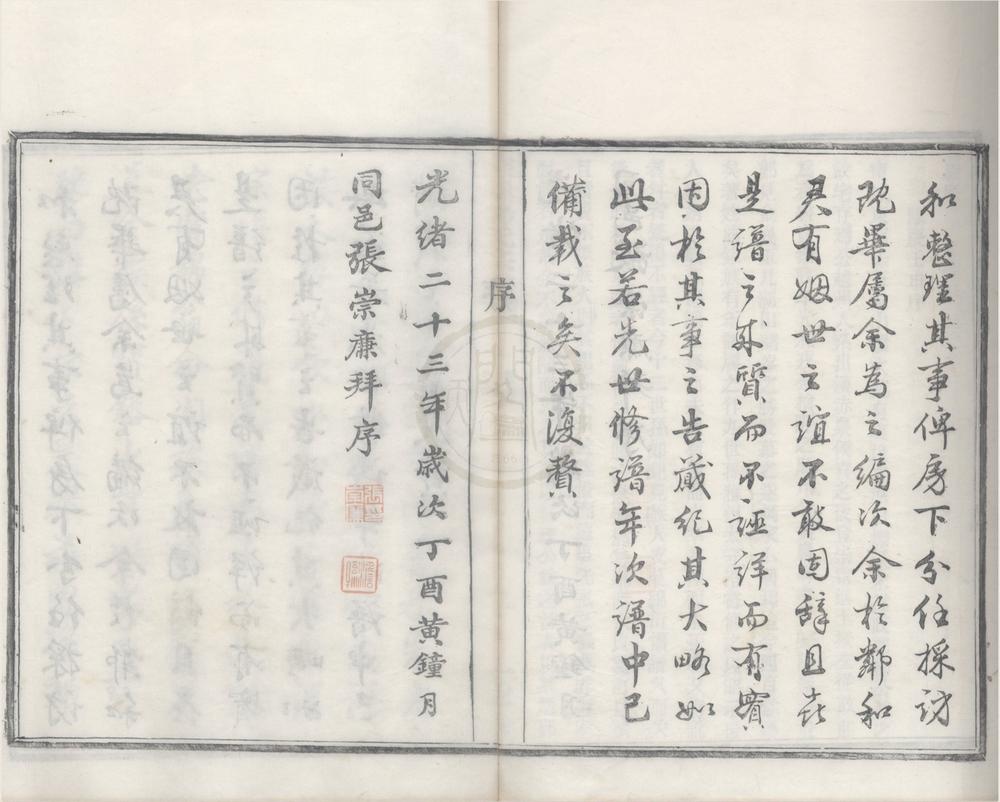 和整理其事俾房下分任採訪
既畢屬余為之編次余於鄰和
君有姻世之誼不敢固辭且喜
是譜之成質而不誣詳而有實
因於其事之告蕆紀其大略如
此至若先世修譜年次譜中已
備載之矣不復贅
序
光緒二十三年歲次丁酉黃鐘月
同邑張崇廉拜序